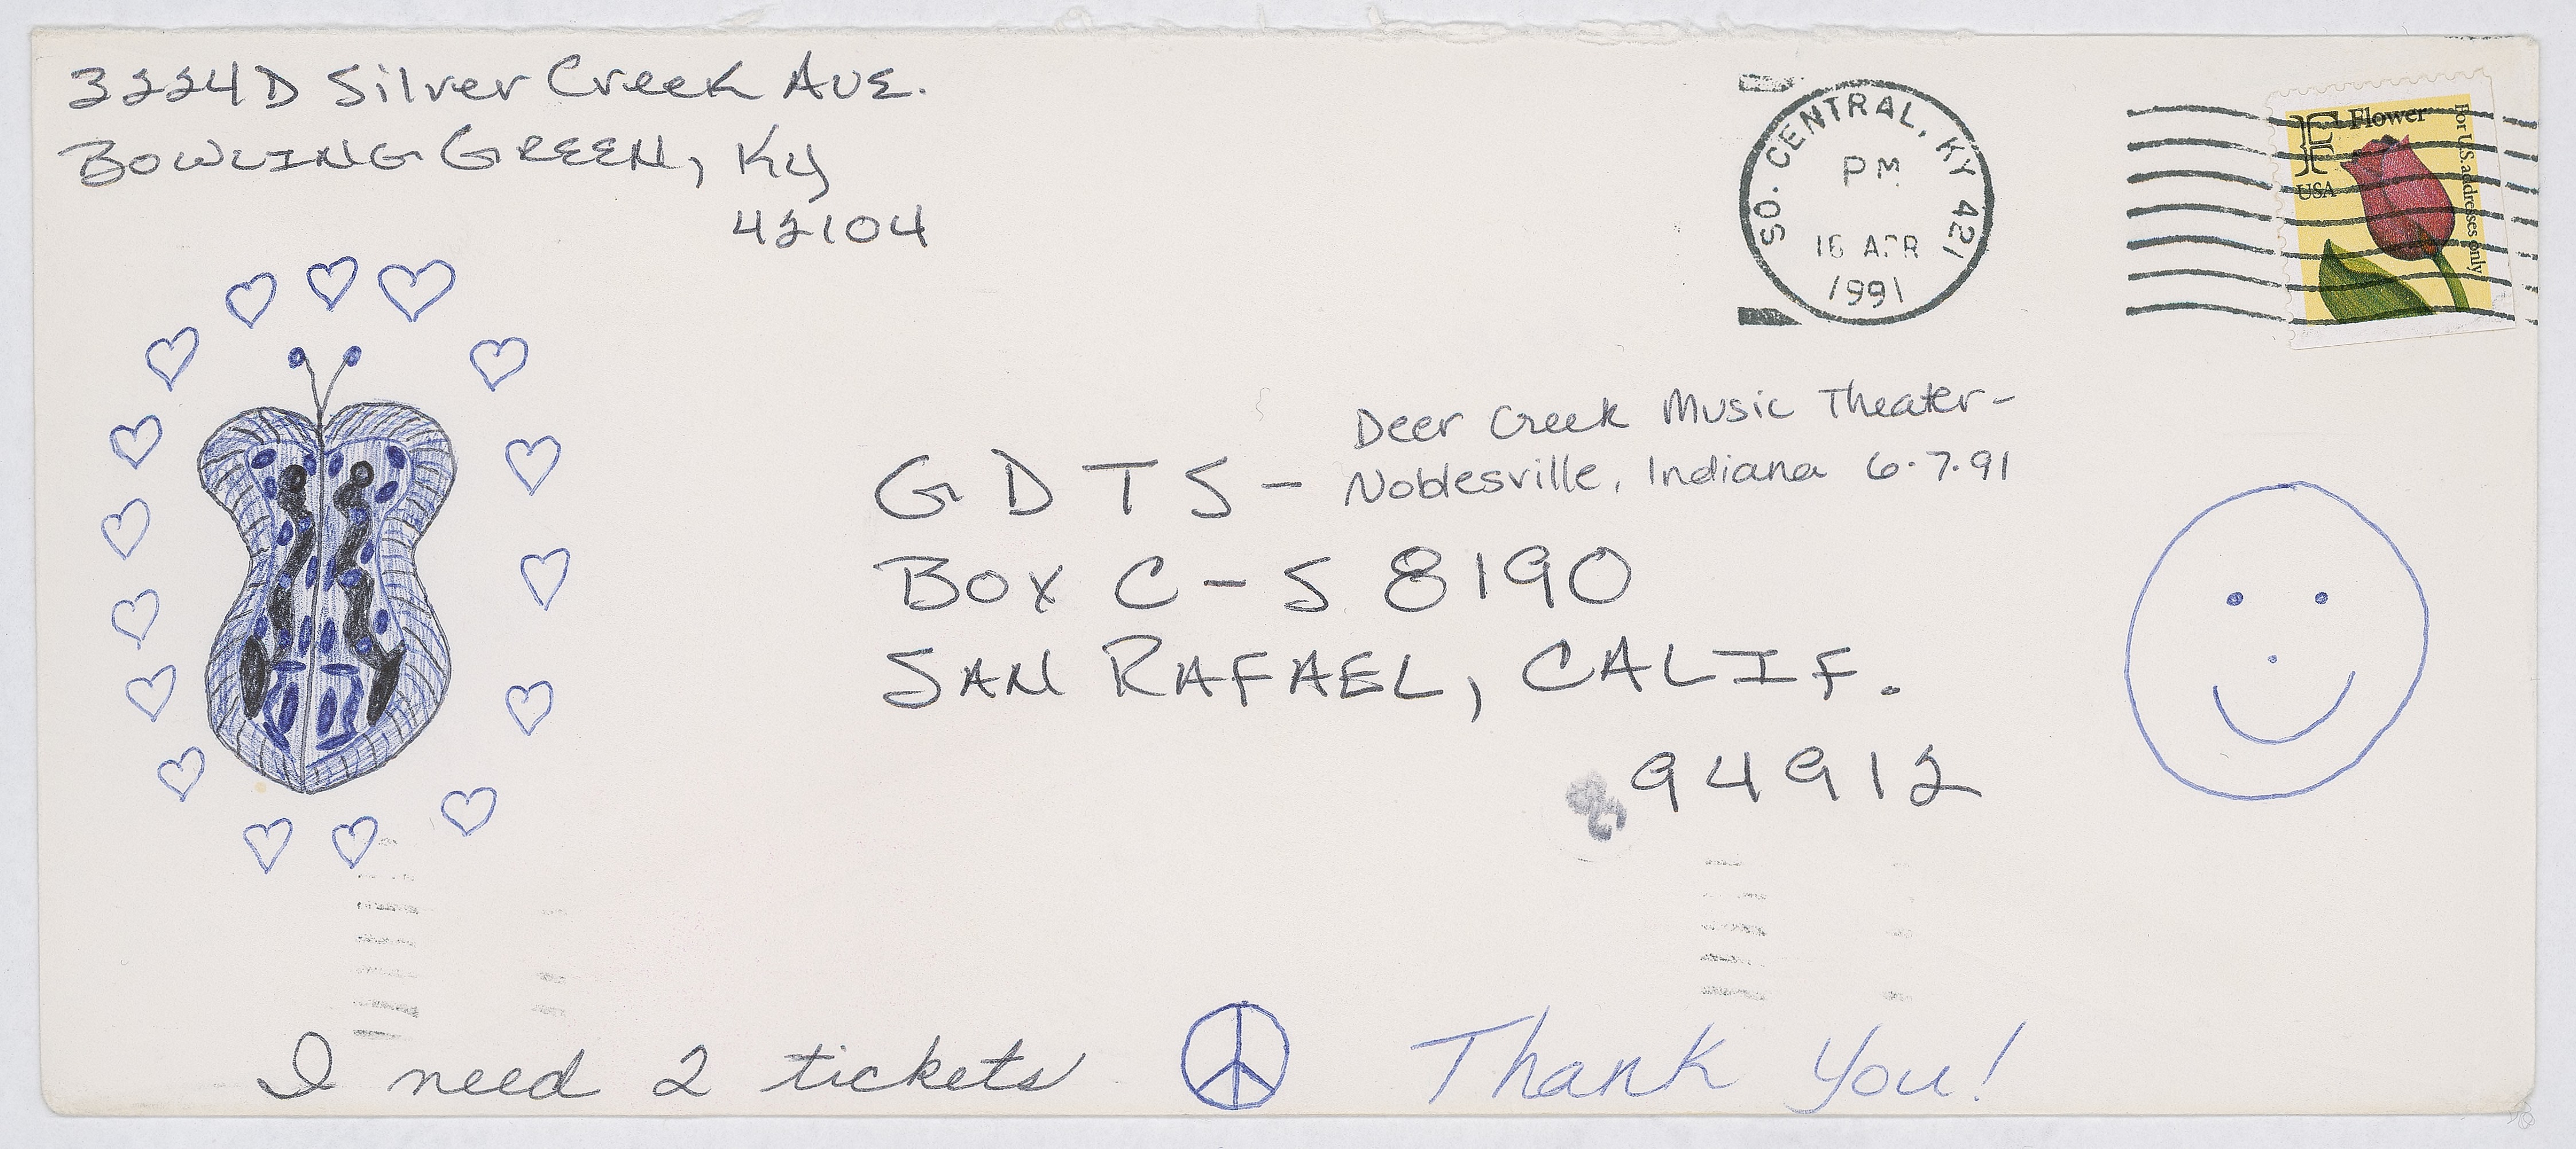 3224D Silver Creek Ave.
Bowling Green, Ky
42104
SO. CENTRAL, KY 421
PM
16 APR
1991
F Flower
USA
For U.S. addresses only
Deer Creek Music Theater-
Noblesville, Indiana 6.7.91
GDTS-
Box C-S 8190
San Rafael, Calif.
94912
I need 2 tickets
Thank you!